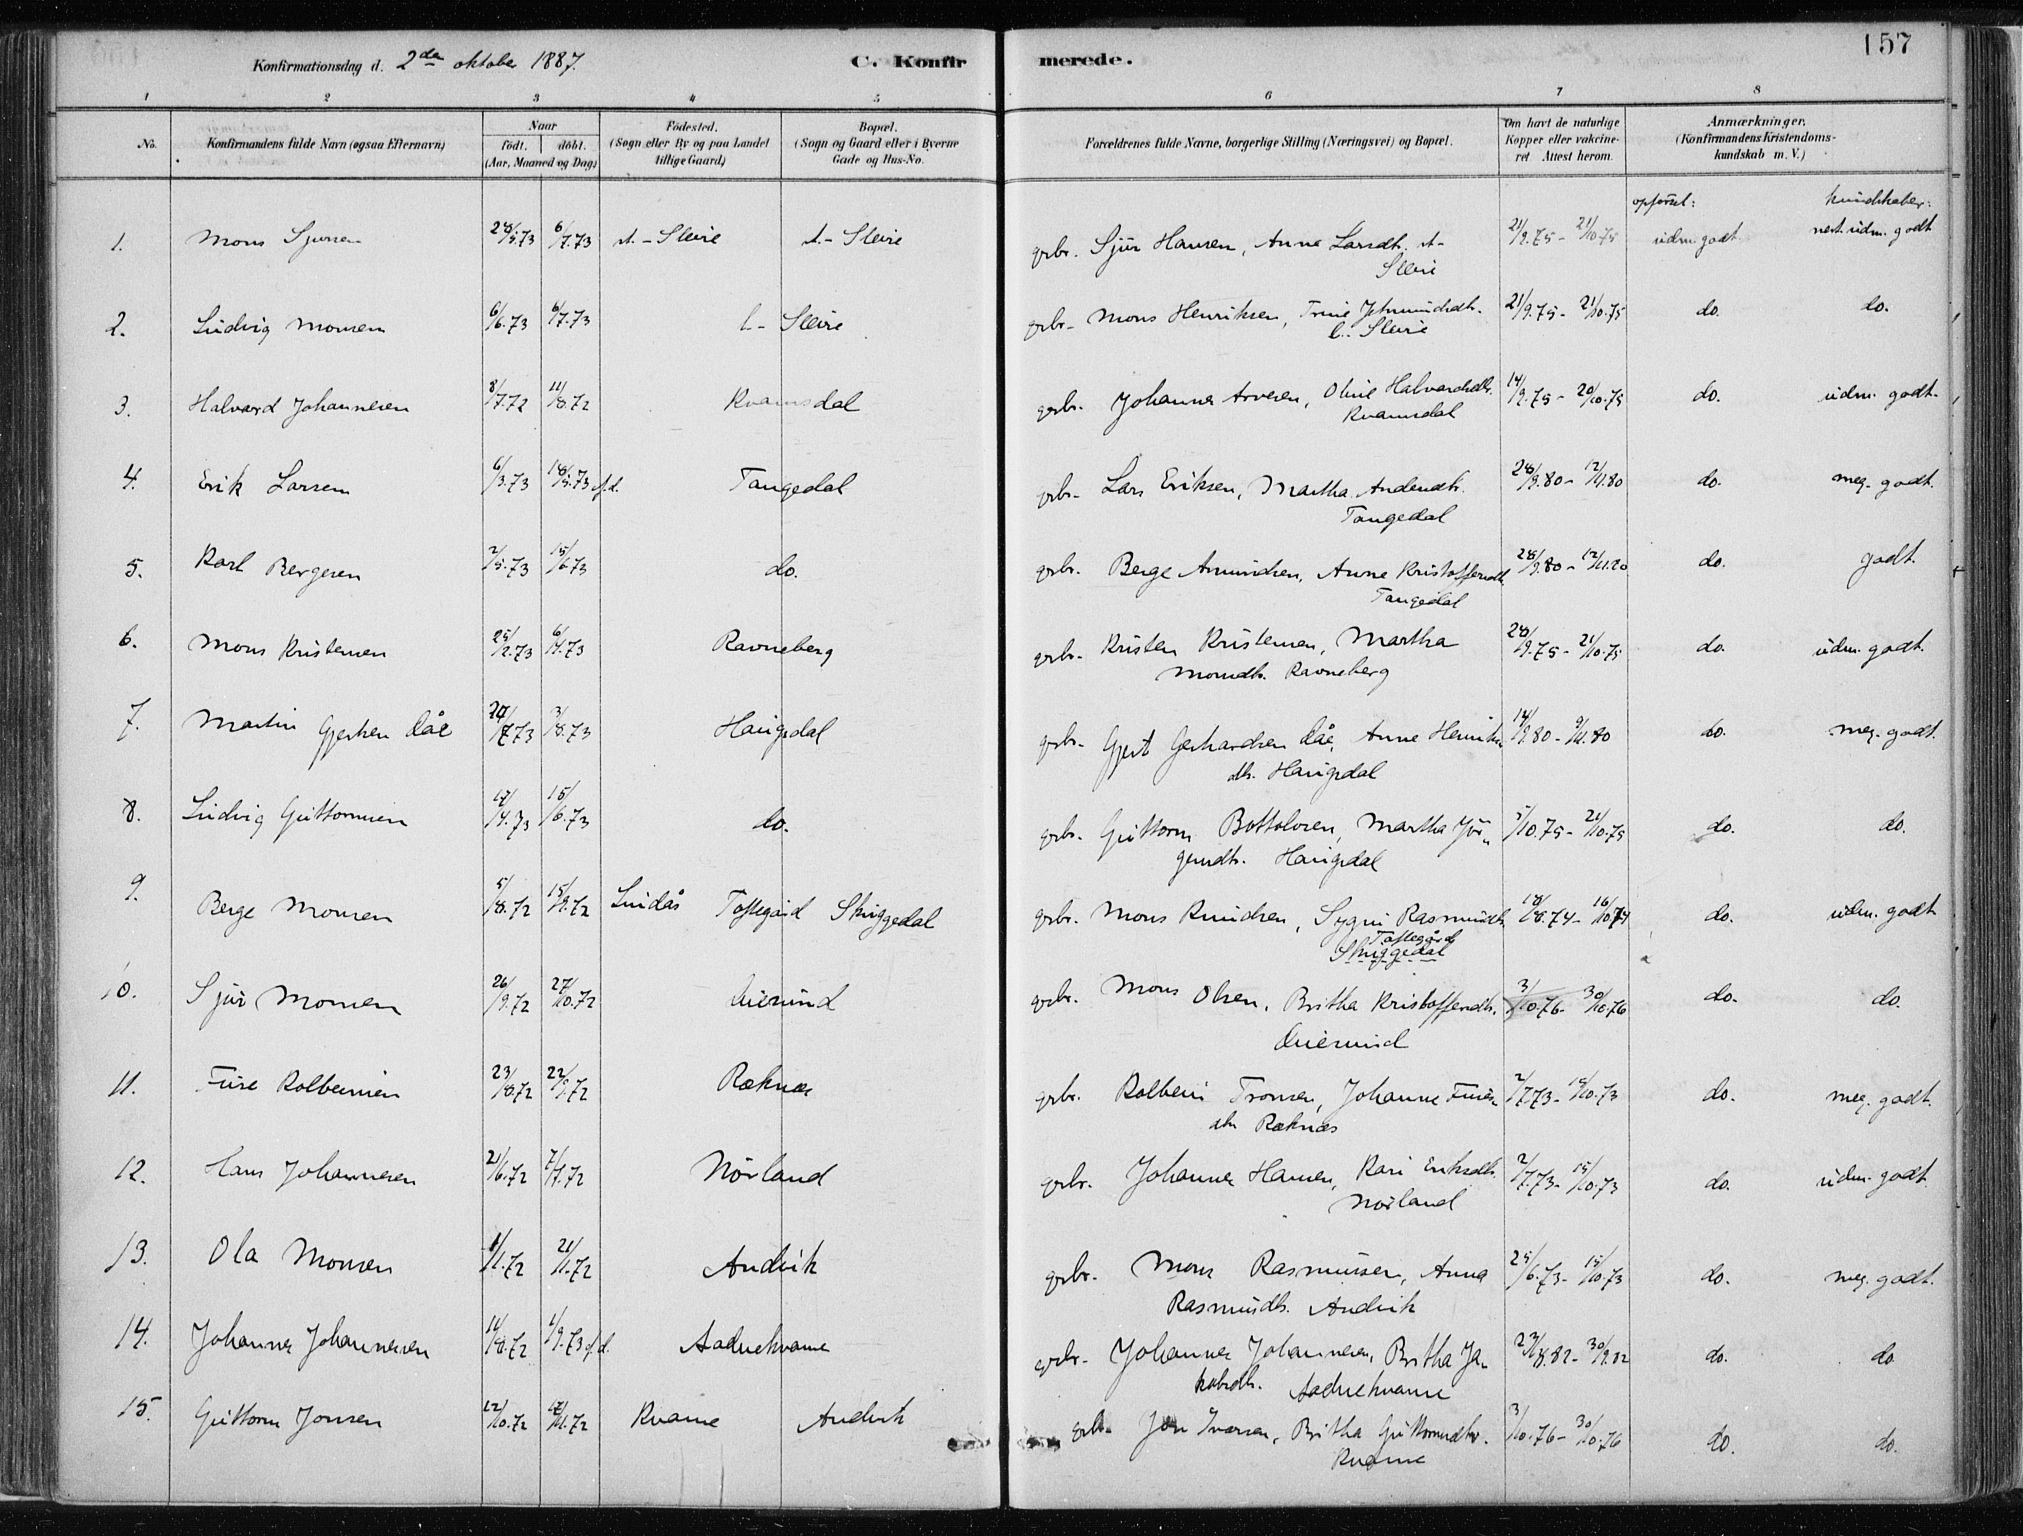 157
Konfirmationsdag d. 2den oktober 1887.
C. Konfirmerede.
1 2 3 4 5 6 7 8
No. Konfirmandens fulde Navn (ogsaa Efternavn) Naar født. døbt. (Aar, Maaned og Dag) Fødested. (Sogn eller By og paa Landet tillige Gaard) Bopæl. (Sogn og Gaard eller i Byerne Gade og Hus-No. Forældrenes fulde Navne, borgerlige Stilling (Næringsvei) og Bopæl. Om havt de naturlige Kopper eller vakcineret Attest herom. Anmærkninger. (Konfirmandens Kristendomskundskab m. V.)
opførsel: kundskaber:
1. Mons Sjursen 28/5.73 6/7.73 A.- Sleire A.- Sleire gbr. Sjur Hansen, Anne Larsdtr. A- 21/9.75 - 21/10.75 udm. godt. nest. udm. godt
Sleire
2. Ludvig Monsen 6/6.73 6/7.73 l- Sleire gbr. Mons Henriksen, Trine 21/9.75 - 21/10.75 do. do.
l.- Sleire
3. Halvard Johannesen 8/7.72 11/8.72 Kvamsdal gbr. Johannes Arvesen, Oline Halvardsdtr. 14/9.75 - 20/10.75 do. udm. godt.
Kvamsdal
4. Erik Larsen 6/3.73 18/5.73 f.d. Tangedal gbr. Lars Eriksen, Martha Andersdtr. 28/9.80 - 12/11.80 do. meg. godt.
Tangedal
5. Karl Bergesen 2/5.73 15/6.73 do. gbr. Berge Amundsen, Anne Kristoffersdtr. 28/9.80 - 12/11.80 do. godt.
Tangedal
6. Mons Kristensen 25/2.73 6/4.73 Ravneberg gbr. Kristen Kristensen, Martha 28/9.75 - 21/10.75 do. udm. godt.
Monsdtr. Ravneberg
7. Martin Gjertsen Låe 3/8.73 Haugsdal gbr. Gjert Gerhardsen Låe, Anne Henriks 14/9.80 - 9/11.80 do. meg. godt.
dtr. Haugsdal
8. Ludvig Guttormsen 17/4.73 15/6.73 do. gbr. Guttorm Bottolvsen, Martha Jør- 5/10.75 - 21/10.75 do. do.
gensdtr. Haugsdal
9. Berge Monsen 5/8.72 15/9.72 Lindås Toftegård Skuggedal gbr. Mons Knudsen, Sygni Rasmusdtr. 18/8.74 - 16/10.74 do. udm. godt
Toftegård
Skuggedal
10. Sjur Monsen 26/9.72 27/10.72 gbr. Mons Olsen, Britha Kristoffersdtr. 3/10.76 - 30/10.76 do. do.
11. Fure Kolbeinsen 23/8.72 22/9.72 Reknes gbr. Kolbein Tronsen, Johanne Fures 2/7.73 - 15/10.73 do. meg. godt.
dtr Reknes
12. Hans Johannesen 21/6.72 7/7.72 Nørland gbr. Johannes Hansen, Kari Eriksdtr. 2/7.73 - 15/10.73 do. udm. godt.
Nørland
13. Ola Monsen 1/1.72 21/1.72 Andvik gbr. Mons Rasmussen, Anna 25/6.73 - 15/10.73 do. meg. godt.
Rasmusdtr. Andvik
14. Johannes Johannesen 11/8.72 1/9.73 f.d. Aadnekvame gbr. Johannes Johannesen, Britha Ja- 23/8.82 - 30/9.82 do. do
kobsdtr. Aadnekvame
15. Guttorm Jonsen 12/10.72 17/11.72 Kvame Andvik gbr. Jon Iversen, Britha Guttormsdtr. 3/10.76 - 30/10.76 do. do.
Kvame